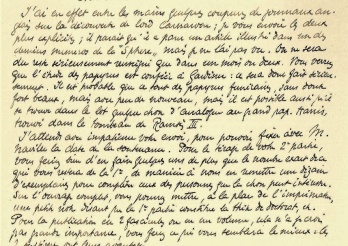 J'ai en effet entre les mains quelques coupures de journaux anglais
sur la découverte de lord Carnarvon ; je vous envoie les deux
plus explicites ; il paraît qu'il a paru un article illustré dans un des
derniers numéros de la Sphere, mais je ne l'ai pas vu. On ne sera
du reste sérieusement renseigné que dans un mois ou deux. Vous verrez
que l'étude des papyrus est confiée à Gardiner : ce sera donc fait sérieu-
sement. Il est probable que ce sont des papyrus funéraires, sans doute
fort beaux, mais avec peu de nouveau, mais il est possible aussi qu'il
se trouve dans le lot quelque chose d'analogue au grand pap. Harris,
trouvé dans le tombeau de Ramsès III.
J'attends avec impatience votre envoi, pour pouvoir fixer avec M.
Naville la date de la soutenance. Pour le tirage de votre 2e partie,
vous feriez bien d'en faire quelques uns de plus que le nombre exact de ceux
qui vous reste de la 1re, de manière à nous en remettre une dizaine
d'exemplaires pour compléter ceux des personnes que la chose peut intéresser.
Sur l'ouvrage complet, vous pourrez mettre, à la place de l'imprimeur,
une petite note disant que la 1re partie constitue la thèse de doctorat, etc.
Pour la publication séparément ou en un volume, cela n'a pas
grande importance, vous ferez ce qui vous semblera le mieux